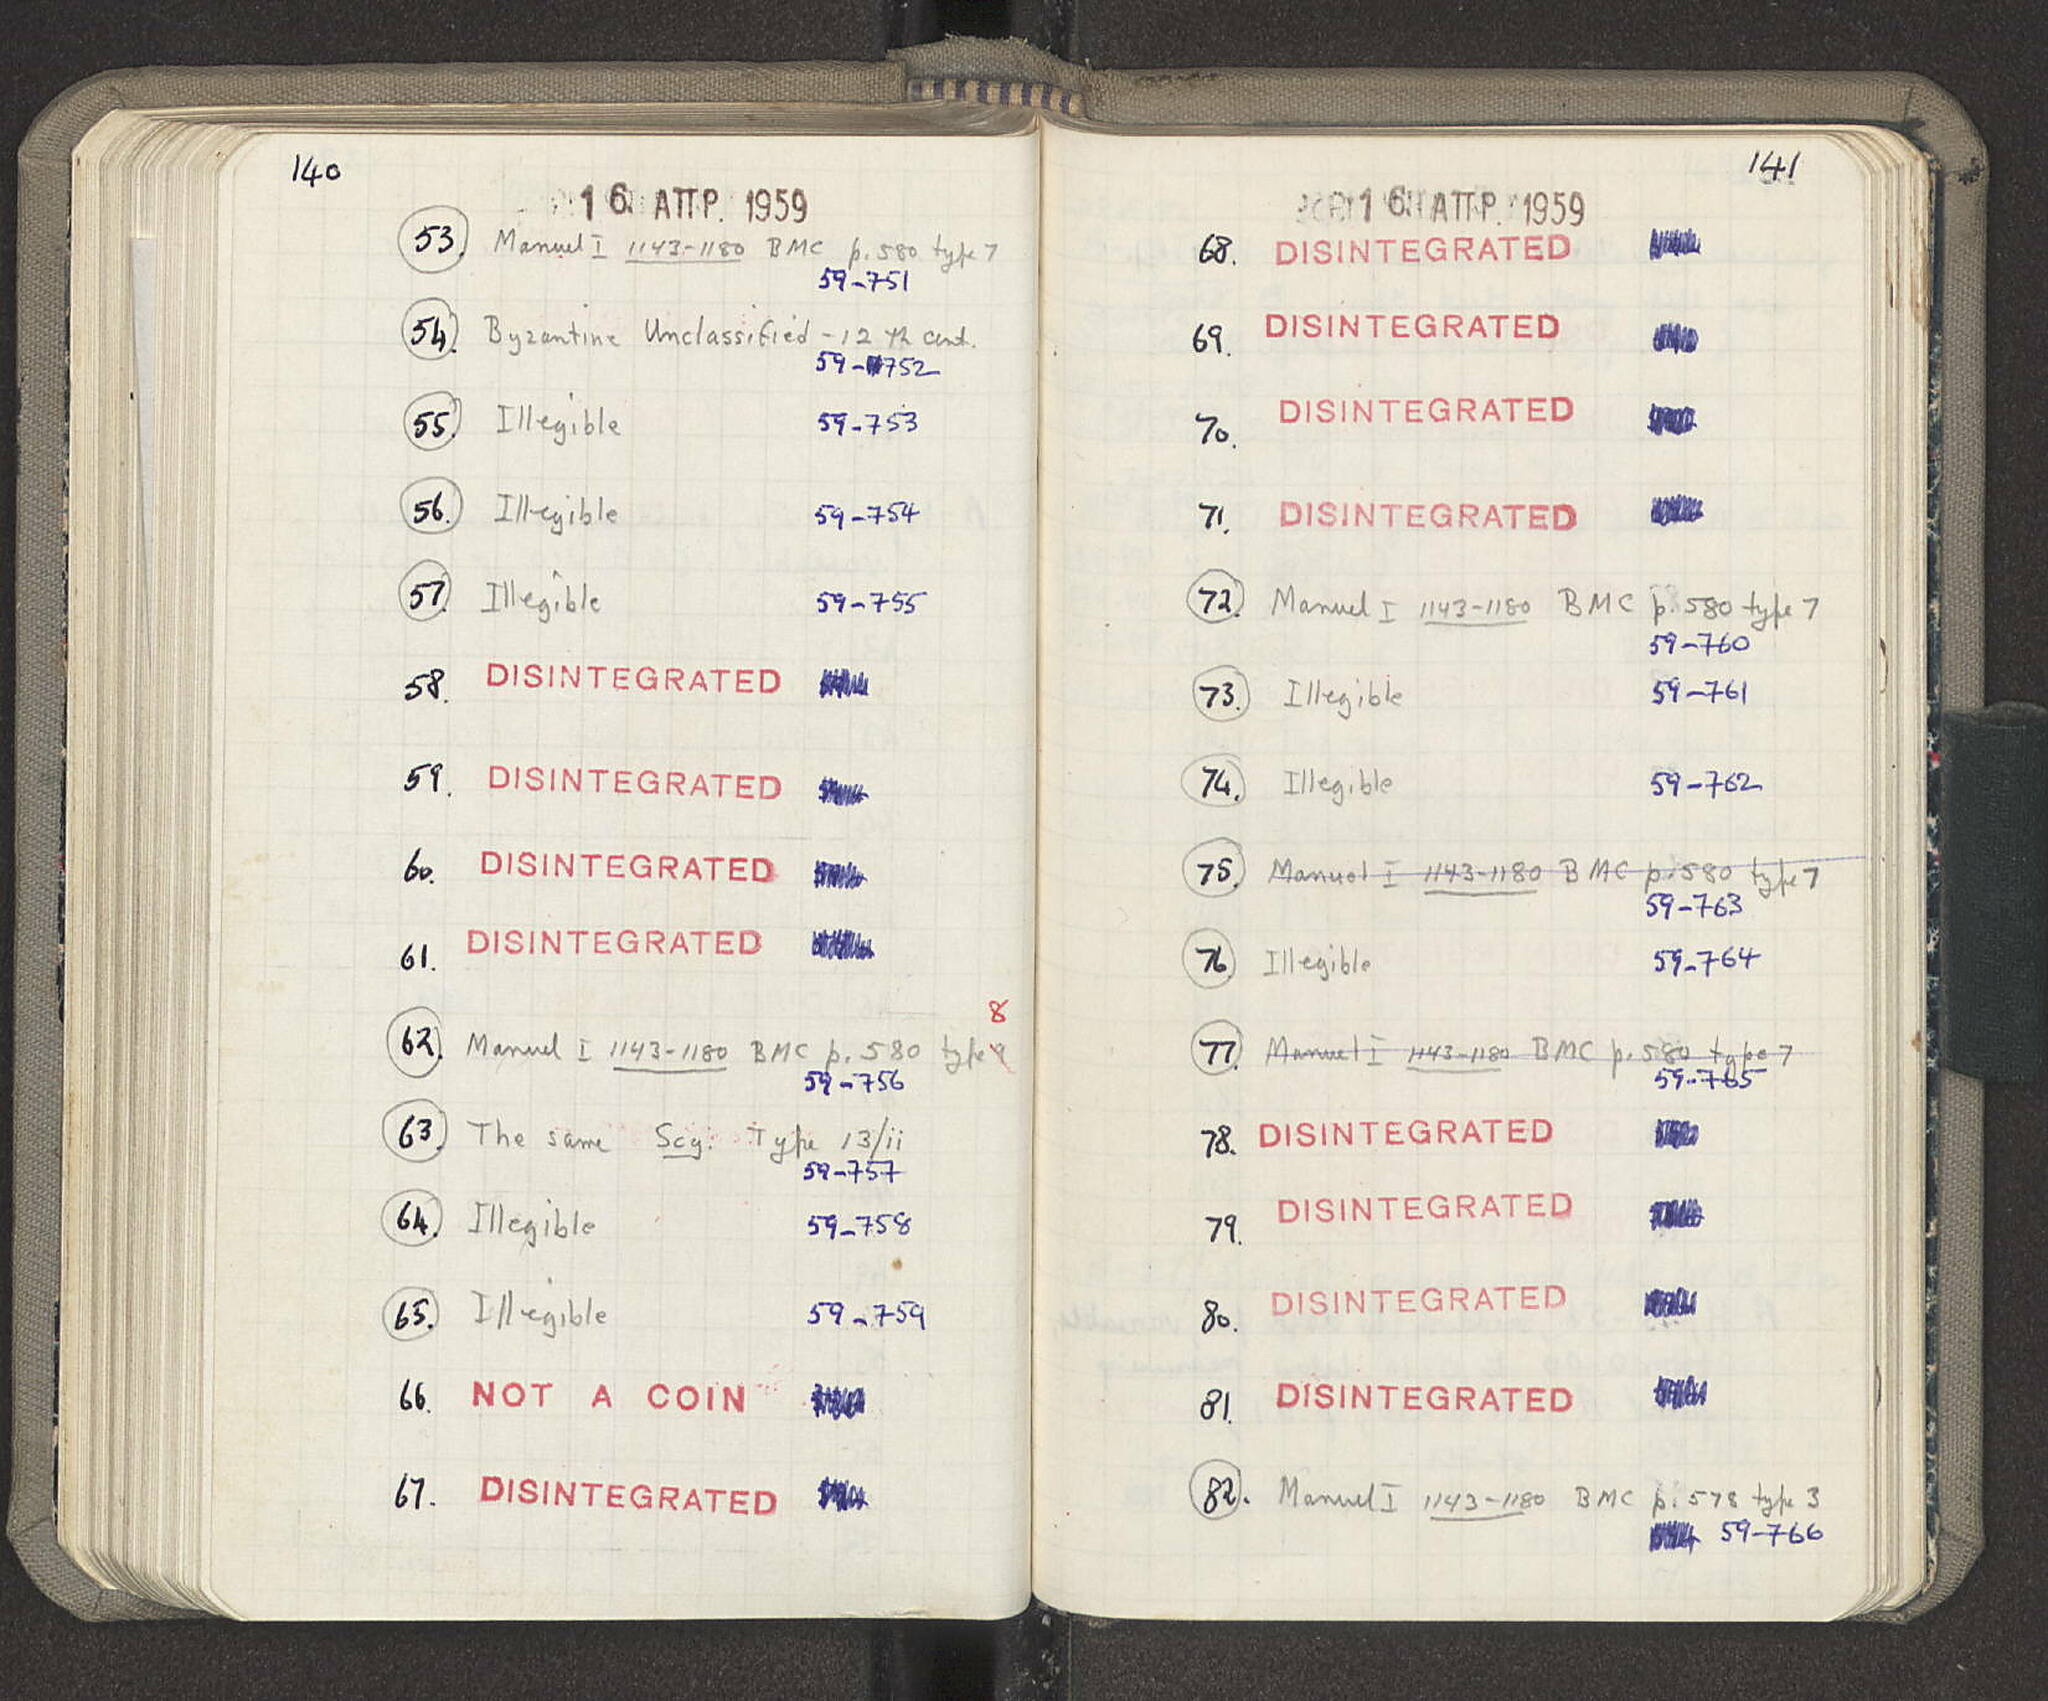 140
16 ΑΠΡ. 1959
53. Manuel I 1143-1180 BMC p. 580 type 7
59-751
54. Byzantine Unclassified - 12 th cent.
59-752
55. Illegible 59-753
56. Illegible 59-754
57. Illegible 59-755
58. DISINTEGRATED
59. DISINTEGRATED
60. DISINTEGRATED
61. DISINTEGRATED
8
62. Manuel I 1143-1180 BMC p. 580 type
59-756
63. The same Scy. Type 13/ii
59-757
64. Illegible 59-758
65. Illegible 59-759
66. NOT A COIN
67. DISINTEGRATED
141
16 ΑΠΡ. 1959
68. DISINTEGRATED
69. DISINTEGRATED
70. DISINTEGRATED
71. DISINTEGRATED
72. Manuel I 1143-1180 BMC p. 580 type 7
59-760
73. Illegible 59-761
74. Illegible 59-762
75. Manuel I 1143-1180 BMC p. 580 type 7
59-763
76. Illegible 59-764
77. Manuel I 1143-1180 BMC p. 580 type 7
59-765
78. DISINTEGRATED
79. DISINTEGRATED
80. DISINTEGRATED
81. DISINTEGRATED
82. Manuel I 1143-1180 BMC p. 578 type 3
59-766